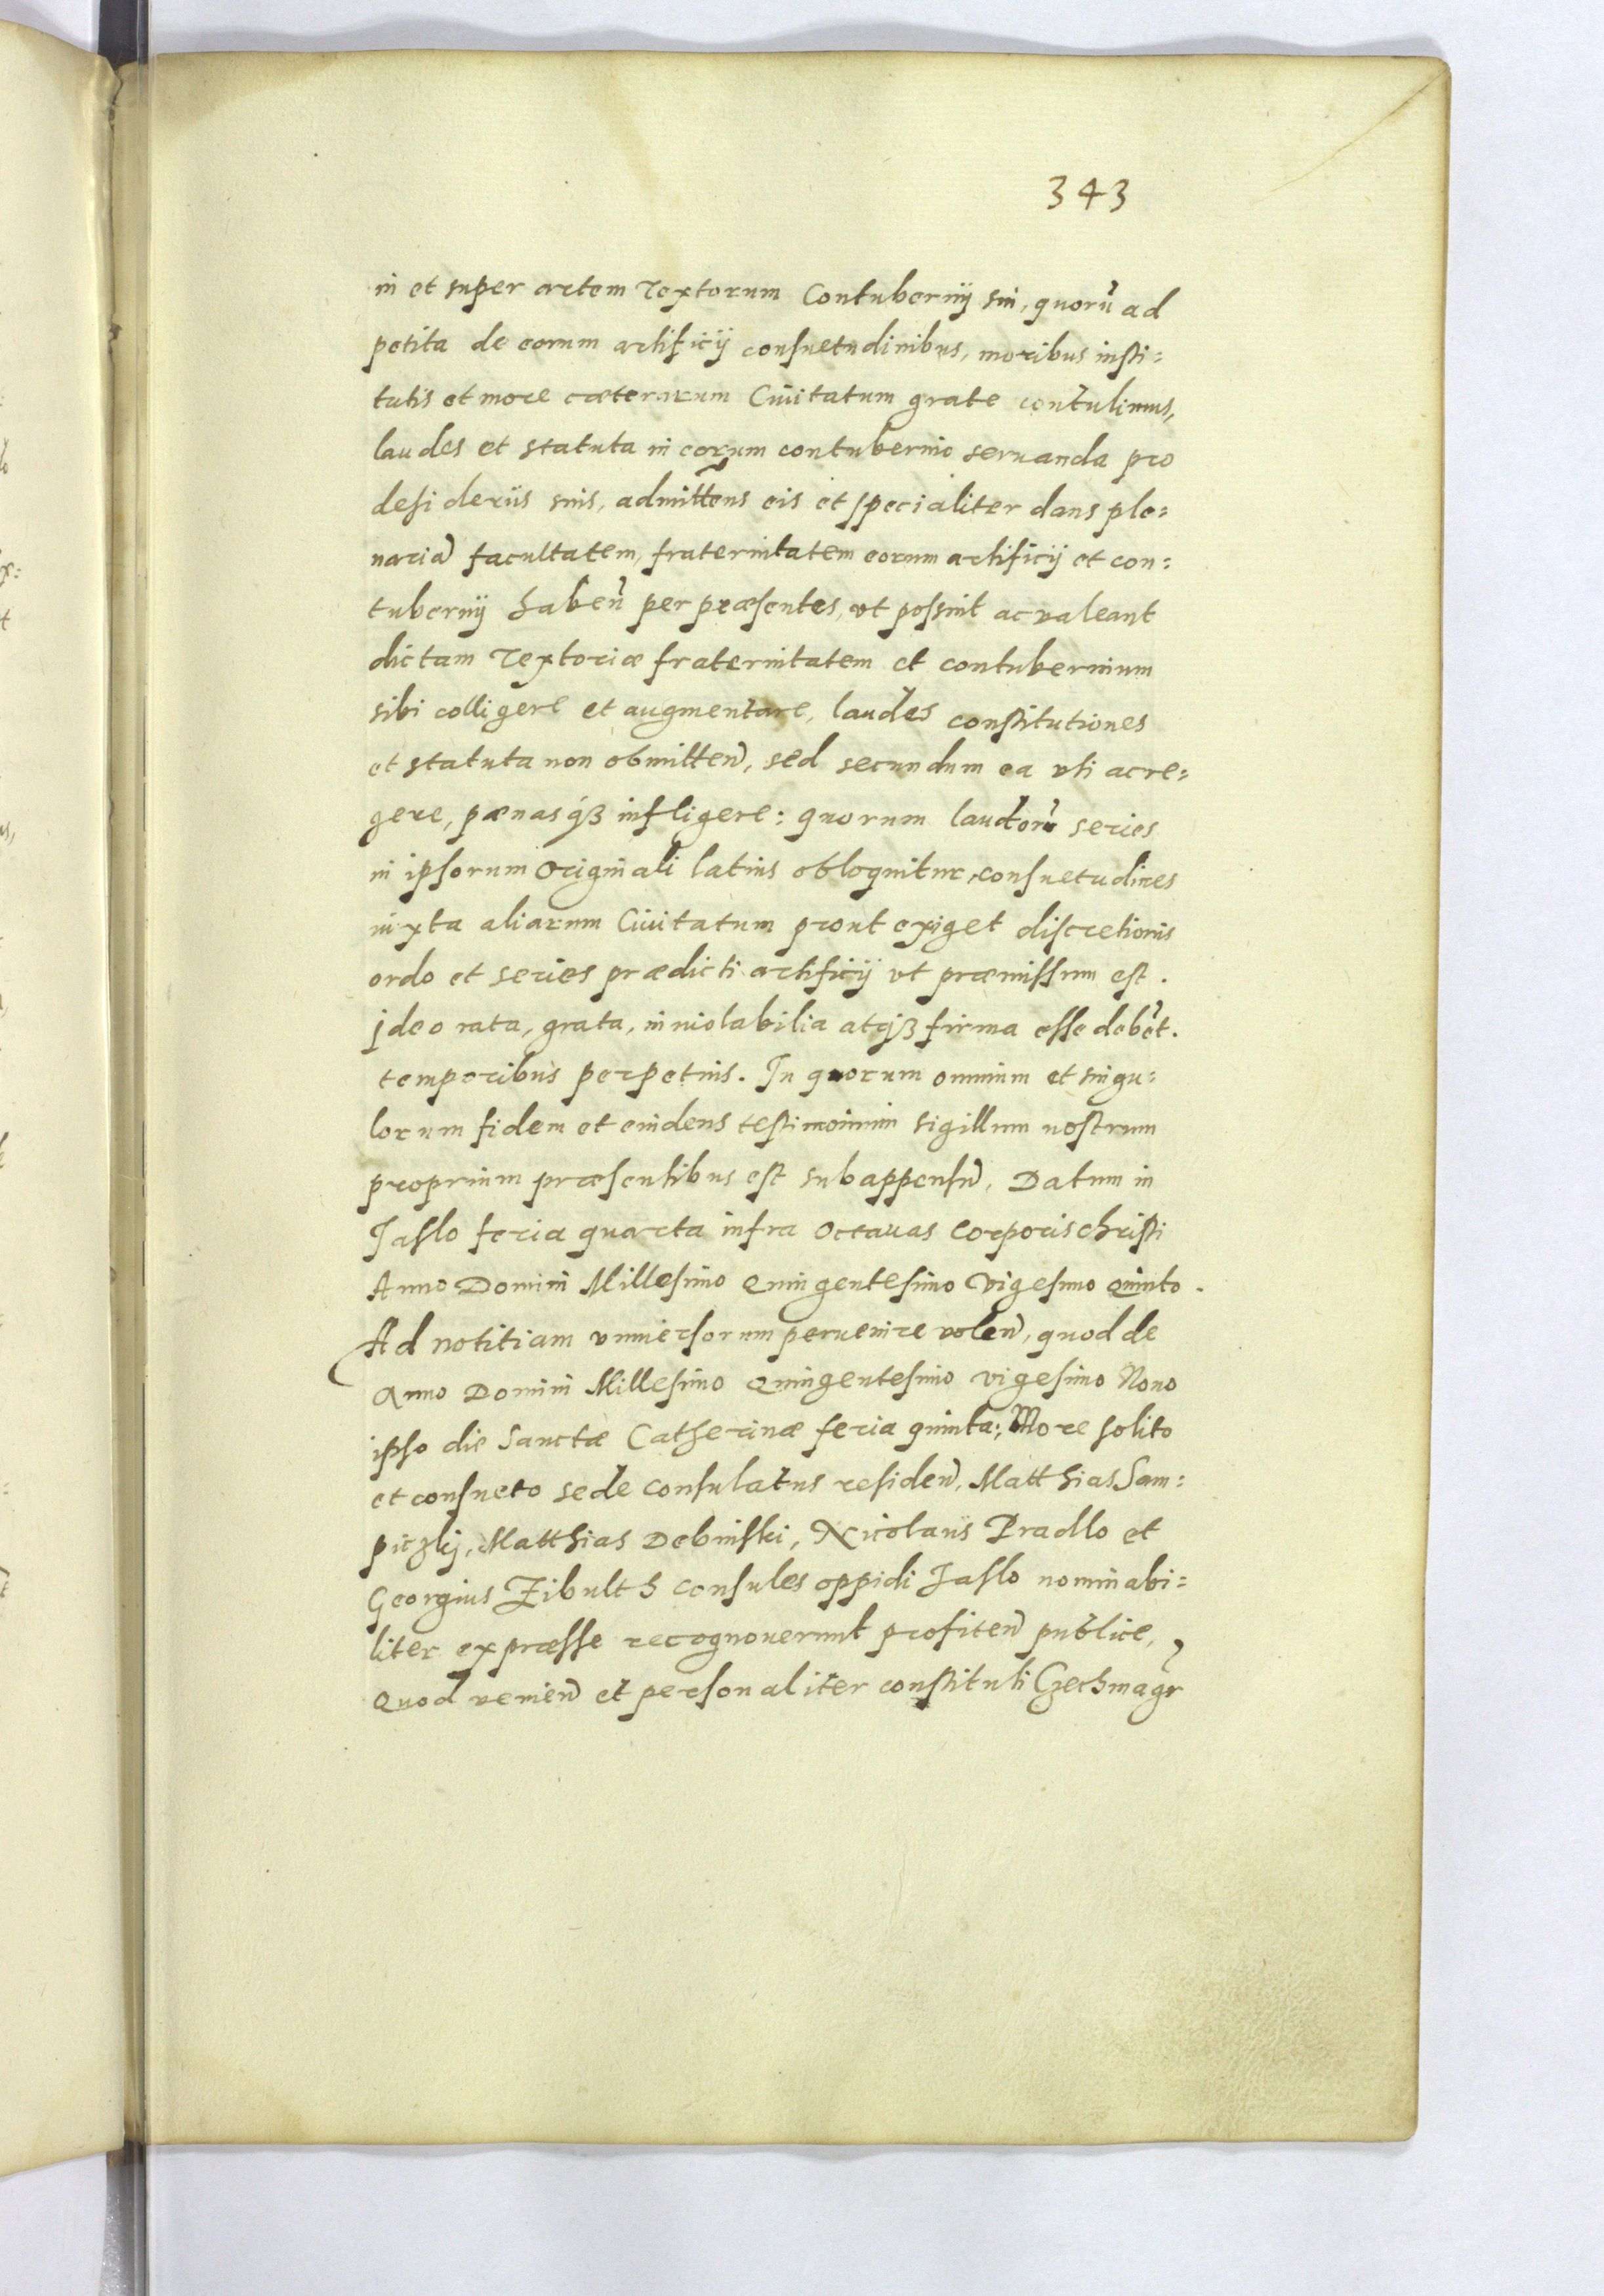 343
in et super artem Textorum Contubernij sui, quorū ad
petita de eorum artificij consuetudinibus, moribus insti=
tutis et more cæterarum Ciuitatum grate contulimus,
laudes et statuta in eorum contubernio seruanda pro
desideriis suis, admittens eis et specialiter dans ple=
nariā facultatem, fraternitatem eorum artificij et con=
tubernij habeñ per præsentes, vt possint ac valeant
dictam Textoriæ fraternitatem et contubernium
sibi colligere et augmentare, laudes constitutiones
et statuta non obmitteñ, sed secundum ea vti ac re=
gere, pænasqȝ infligere: quorum laudorū series
in ipsorum Originali latius obloquitur, consuetudines
iuxta aliarum Ciuitatum prout exiget discretionis
ordo et series prædicti artificij vt præmissum est.
Ideo rata, grata, inuiolabilia atqȝ firma esse debēt.
temporibus perpetuis. In quorum omnium et singu=
lorum fidem et euidens testimonium sigillum nostrum
proprium præsentibus est subappensū. Datum in
Jaslo feria quarta infra Octauas Corporis christi
Anno Domini Millesimo Quingentesimo Vigesimo Quinto.
Ad notitiam vniuersorum peruenire voleñ, quod de
Anno Domini Millesimo Quingentesimo vigesimo Nono
ipso die Sanctæ Catherinæ feria quinta; More solito
et consueto sede consulatus resideñ, Matthias Sam=
piczkj, Matthias Debinski, Nicolaus Pradlo et
Georgius Zibulth consules oppidi Jaslo nominabi=
liter expræsse recognouerunt profiteñ publice,
Quod venieñ et personaliter constituti Czechmagr̄